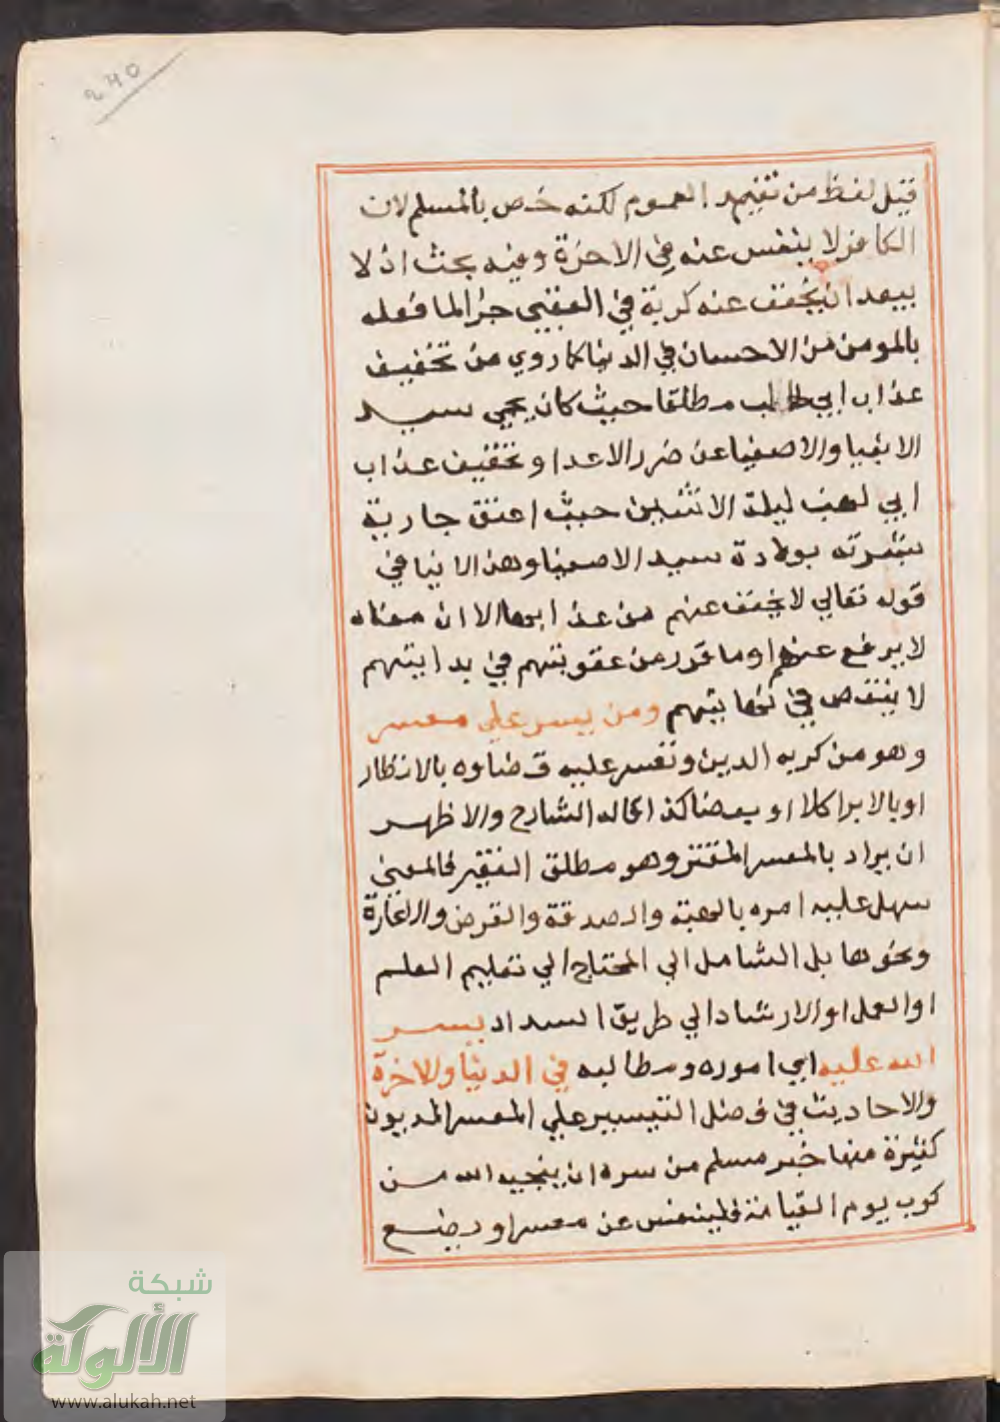 ٢٤٥
قيل لفظ من تفيد العموم لكنه خص بالمسلم لان
الكافر لا ينفس عنه في الاخرة وفيه بحث اذ لا
يبعد ان يخفف عنه كربة في العقبى جزا لما فعله
بالمومن من الاحسان في الدنيا كما روي من تخفيف
عذاب ابي طالب مطلقا حيث كان يحمي سيد
الاتقيا والاصفيا عن ضرر الاعدا وتخفيف عذاب
ابي لهب ليلة الاثنين حيث اعتق جارية
بشرته بولادة سيد الاصفيا وهذا لا ينافي
قوله تعالي لا يخفف عنهم من عذابها الا ان معناه
لا يرفع عنهم او ما قرر من عقوبتهم في بدايتهم
لا ينقص في نهايتهم ومن يسر علي معسر
وهو من كربه الدين وتعسر عليه قضاوه بالانظار
او بالابرا كلا او بعضا كذا قاله الشارح والاظهر
ان يراد بالمعسر المقتر وهو مطلق الفقير فالمعنى
سهل عليه امره بالهبة والصدقة والقرض والاعارة
ونحوها بل الشامل الي المحتاج الي تعليم العلم
او العمل او الارشاد الي طريق السداد يسر
الله عليه اي اموره ومطالبه في الدنيا والاخرة
والاحاديث في فضل التيسير علي المعسر المديون
كثيرة منها خبر مسلم من سره ان ينجيه الله من
كرب يوم القيامة فلينفس عن معسر او يضع
شبكة
الألوكة
www.alukah.net